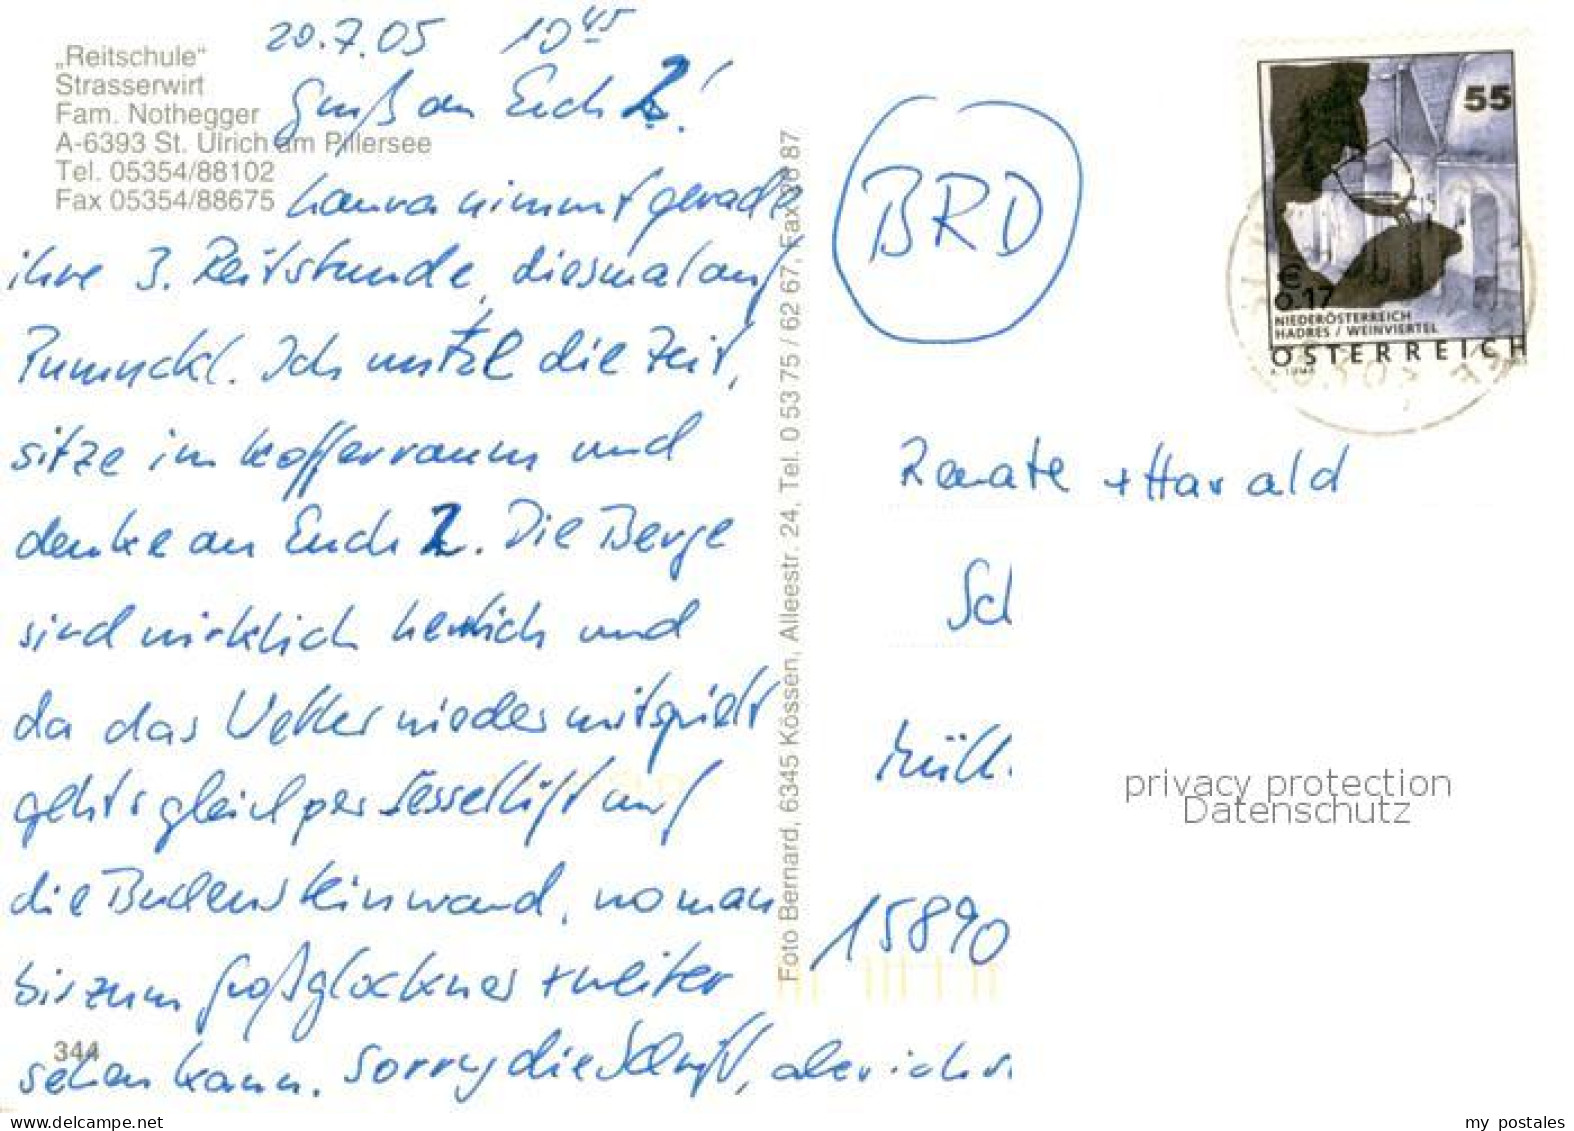 20.7.05 10 45
„Reitschule“
Strasserwirt
Fam. Nothegger
A-6393 St. Ulrich am Pillersee
Tel. 05354/88102
Fax 05354/88675
Gruß an Euch 2!
Laura nimmt gerade
ihre 3. Reitstunde, diesmal auf
Pumuckl. Ich nutze die Zeit,
sitze im Kofferraum und
denke an Euch 2. Die Berge
sind wirklich herrlich und
da das Wetter wieder mitspielt
geht's gleich per Sessellift auf
die Buchensteinwand, wo man
bis zum Großglockner + weiter
sehen kann. Sorry die Schrift, aber ich
344
Foto Bernard, 6345 Kössen, Alleestr. 24, Tel. 0 53 75 / 62 67, Fax 66 87
BRD
55
€
0.17
NIEDERÖSTERREICH
HADRES / WEINVIERTEL
ÖSTERREICH
Renate + Harald
Sch
Müll
15890
privacy protection
Datenschutz
www.delcampe.net
my_postales